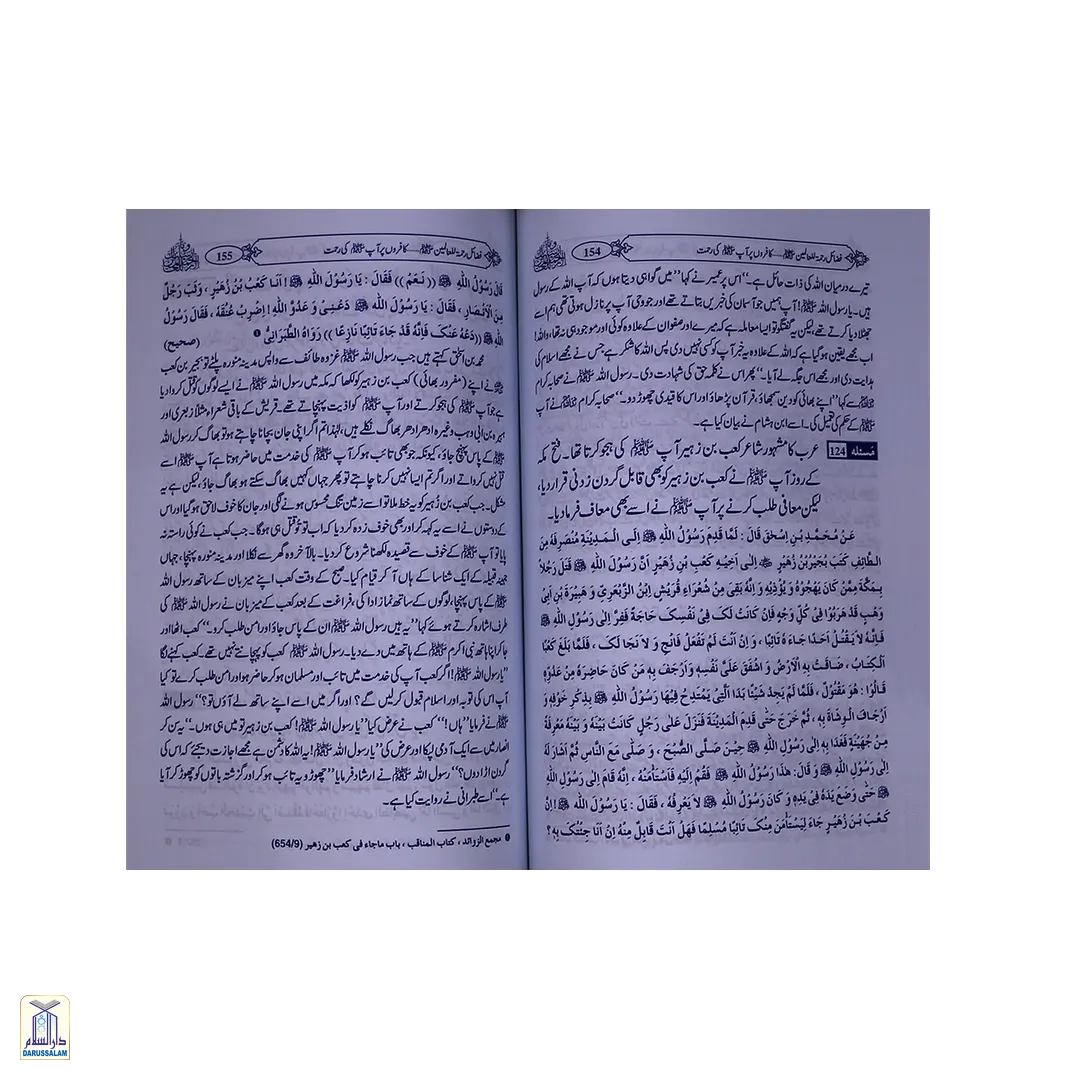 فضائل رحمۃ للعالمین ﷺ ..... کافروں پر آپ ﷺ کی رحمت
154
تیرے درمیان اللہ کی ذات حائل ہے۔‘‘ اس پر عمیر نے کہا ’’میں گواہی دیتا ہوں کہ آپ اللہ کے رسول
ہیں۔ یا رسول اللہ ﷺ! آپ ہمیں جو آسمان کی خبریں بتاتے تھے اور جو وحی آپ پر نازل ہوتی تھی ہم اسے
جھٹلا دیا کرتے تھے، لیکن یہ گفتگو تو ایسا معاملہ ہے کہ میرے اور صفوان کے علاوہ کوئی اور موجود ہی نہ تھا، واللہ!
اب مجھے یقین ہو گیا ہے کہ اللہ کے علاوہ یہ خبر آپ کو کسی نہیں دی پس اللہ کا شکر ہے جس نے مجھے اسلام کی
ہدایت دی اور مجھے اس جگہ لے آیا۔‘‘ پھر اس نے کلمہ حق کی شہادت دی۔ رسول اللہ ﷺ نے صحابہ کرام
سے کہا ’’اپنے بھائی کو دین سمجھاؤ، قرآن پڑھاؤ اور اس کا قیدی چھوڑ دو۔‘‘ صحابہ کرام نے آپ
ﷺ کے حکم کی تعمیل کی۔ اسے ابن ہشام نے بیان کیا ہے۔
مسئلہ 124 عرب کا مشہور شاعر کعب بن زہیر آپ ﷺ کی ہجو کرتا تھا۔ فتح مکہ
کے روز آپ ﷺ نے کعب بن زہیر کو بھی قابل گردن زدنی قرار دیا،
لیکن معافی طلب کرنے پر آپ ﷺ نے اسے بھی معاف فرما دیا۔
عَنْ مُحَمَّدِ بْنِ اِسْحٰقَ قَالَ : لَمَّا قَدِمَ رَسُوْلُ اللّٰهِ ﷺ اِلَى الْمَدِيْنَةِ مُنْصَرِفَهُ مِنَ
الطَّائِفِ كَتَبَ بُجَيْرُ بْنُ زُهَيْرٍ اِلٰى اَخِيْهِ كَعْبِ بْنِ زُهَيْرٍ اَنَّ رَسُوْلَ اللّٰهِ ﷺ قَتَلَ رَجُلًا
بِمَكَّةَ مِمَّنْ كَانَ يَهْجُوْهُ وَ يُؤْذِيْهِ وَ اِنَّهُ بَقِىَ مِنْ شُعَرَاءِ قُرَيْشٍ اِبْنُ الزَّبَعْرِىِّ وَ هُبَيْرَةُ بْنُ اَبِىْ
وَهْبٍ قَدْ هَرَبُوْا فِىْ كُلِّ وَجْهٍ فَاِنْ كَانَتْ لَكَ فِىْ نَفْسِكَ حَاجَةٌ فَفِرَّ اِلٰى رَسُوْلِ اللّٰهِ ﷺ
فَاِنَّهُ لَا يَقْتُلُ اَحَدًا جَاءَهُ تَائِبًا ، وَ اِنْ اَنْتَ لَمْ تَفْعَلْ فَانْجُ وَ لَا نَجَا لَكَ ، فَلَمَّا بَلَغَ كَعْبًا
الْكِتَابُ ، ضَاقَتْ بِهِ الْاَرْضُ وَ اشْفَقَ عَلٰى نَفْسِهِ وَ اَرْجَفَ بِهِ مَنْ كَانَ حَاضِرَهُ مِنْ عَدُوِّهِ
قَالُوْا : هُوَ مَقْتُوْلٌ ، فَلَمَّا لَمْ يَجِدْ شَيْئًا بَدَا الَّتِىْ يَمْتَدِحُ فِيْهَا رَسُوْلَ اللّٰهِ ﷺ بِذِكْرِ خَوْفِهِ وَ
اِرْجَافِ الْوِشَاةِ بِهِ ، ثُمَّ خَرَجَ حَتّٰى قَدِمَ الْمَدِيْنَةَ فَنَزَلَ عَلٰى رَجُلٍ كَانَتْ بَيْنَهُ وَ بَيْنَهُ مَعْرِفَةٌ
مِنْ جُهَيْنَةَ فَغَدَا بِهِ اِلٰى رَسُوْلِ اللّٰهِ ﷺ حِيْنَ صَلَّى الصُّبْحَ ، وَ صَلّٰى مَعَ النَّاسِ ثُمَّ اَشَارَ لَهُ
اِلٰى رَسُوْلِ اللّٰهِ ﷺ وَ قَالَ: هٰذَا رَسُوْلُ اللّٰهِ ﷺ فَقُمْ اِلَيْهِ فَاسْتَأْمِنْهُ ، اِنَّهُ قَامَ اِلٰى رَسُوْلِ اللّٰهِ
ﷺ حَتّٰى وَضَعَ يَدَهُ فِىْ يَدِهِ وَ كَانَ رَسُوْلُ اللّٰهِ ﷺ لَا يَعْرِفُهُ ، فَقَالَ : يَا رَسُوْلَ اللّٰهِ ﷺ ! اِنَّ
كَعْبَ بْنَ زُهَيْرٍ جَاءَ لِيَسْتَأْمِنَ مِنْكَ تَائِبًا مُسْلِمًا فَهَلْ اَنْتَ قَابِلٌ مِنْهُ اِنْ اَنَا جِئْتُكَ بِهِ ؟
فضائل رحمۃ للعالمین ﷺ ..... کافروں پر آپ ﷺ کی رحمت
155
قَالَ رَسُوْلُ اللّٰهِ ﷺ (( نَعَمْ )) فَقَالَ : يَا رَسُوْلَ اللّٰهِ ﷺ ! اَنَا كَعْبُ بْنُ زُهَيْرٍ ، وَثَبَ رَجُلٌ
مِنَ الْاَنْصَارِ ، فَقَالَ : يَا رَسُوْلَ اللّٰهِ ﷺ دَعْنِىْ وَ عَدُوَّ اللّٰهِ ! اَضْرِبْ عُنُقَهُ ، فَقَالَ رَسُوْلُ
اللّٰهِ ﷺ (( دَعْهُ عَنْكَ فَاِنَّهُ قَدْ جَاءَ تَائِبًا نَازِعًا )) رَوَاهُ الطَّبَرَانِىُّ ❶ (صحیح)
محمد بن اسحٰق کہتے ہیں جب رسول اللہ ﷺ غزوہ طائف سے واپس مدینہ منورہ پلٹے تو بجیر بن کعب
نے اپنے (مفرور بھائی) کعب بن زہیر کو لکھا کہ مکہ میں رسول اللہ ﷺ نے ایسے لوگوں کو قتل کروا دیا
ہے جو آپ ﷺ کی ہجو کرتے اور آپ ﷺ کو اذیت پہنچاتے تھے۔ قریش کے باقی شعراء مثلاً زبعری اور
ہبیرہ بن ابی وہب وغیرہ ادھر ادھر بھاگ نکلے ہیں، لہٰذا تم اگر اپنی جان بچانا چاہتے ہو تو بھاگ کر رسول اللہ
ﷺ کے پاس پہنچ جاؤ، کیونکہ جو بھی تائب ہو کر آپ ﷺ کی خدمت میں حاضر ہوتا ہے آپ ﷺ اسے
قتل نہیں کرواتے اور اگر تم ایسا نہیں کرنا چاہتے تو پھر جہاں کہیں بھاگ سکتے ہو بھاگ جاؤ، لیکن ہے یہ
مشکل۔ جب کعب بن زہیر کو یہ خط ملا تو اسے زمین تنگ محسوس ہونے لگی اور جان کا خوف لاحق ہو گیا اور اس
کے دوستوں نے اسے یہ کہہ کر اور بھی خوف زدہ کر دیا کہ اب تو تو قتل ہی ہوگا۔ جب کعب نے کوئی راستہ نہ
پایا تو آپ ﷺ کے خوف سے قصیدہ لکھنا شروع کر دیا۔ بالآخر وہ گھر سے نکلا اور مدینہ منورہ پہنچا، جہاں
جہینہ قبیلہ کے ایک شناسا کے ہاں آ کر قیام کیا۔ صبح کے وقت کعب اپنے میزبان کے ساتھ رسول اللہ
ﷺ کے پاس پہنچا، لوگوں کے ساتھ نماز ادا کی، فراغت کے بعد کعب کے میزبان نے رسول اللہ ﷺ کی
طرف اشارہ کرتے ہوئے کہا ’’یہ ہیں رسول اللہ ﷺ ان کے پاس جاؤ اور امن طلب کرو۔‘‘ کعب اٹھا اور
جا کر اپنا ہاتھ نبی اکرم ﷺ کے ہاتھ میں دے دیا۔ رسول اللہ ﷺ کعب کو پہچانتے نہیں تھے۔ کعب کہنے لگا
’’یا رسول اللہ ﷺ! اگر کعب آپ کی خدمت میں تائب اور مسلمان ہو کر حاضر ہو اور امن طلب کرے تو کیا
آپ اس کی توبہ اور اسلام قبول کر لیں گے؟ اور اگر میں اسے اپنے ساتھ لے آؤں تو؟‘‘ رسول اللہ
ﷺ نے فرمایا ’’ہاں!‘‘ کعب نے عرض کیا ’’یا رسول اللہ ﷺ! کعب بن زہیر تو میں ہی ہوں۔‘‘ یہ سن کر
انصار میں سے ایک آدمی لپکا اور عرض کی ’’یا رسول اللہ ﷺ! یہ اللہ کا دشمن ہے مجھے اجازت دیجئے کہ اس کی
گردن اڑا دوں؟‘‘ رسول اللہ ﷺ نے ارشاد فرمایا ’’چھوڑو یہ تائب ہو کر اور گزشتہ باتوں کو چھوڑ کر آیا
ہے۔‘‘ اسے طبرانی نے روایت کیا ہے۔
❶ مجمع الزوائد ، کتاب المناقب ، باب ماجاء فی کعب بن زهیر (654/9)
دارالسلام
DARUSSALAM